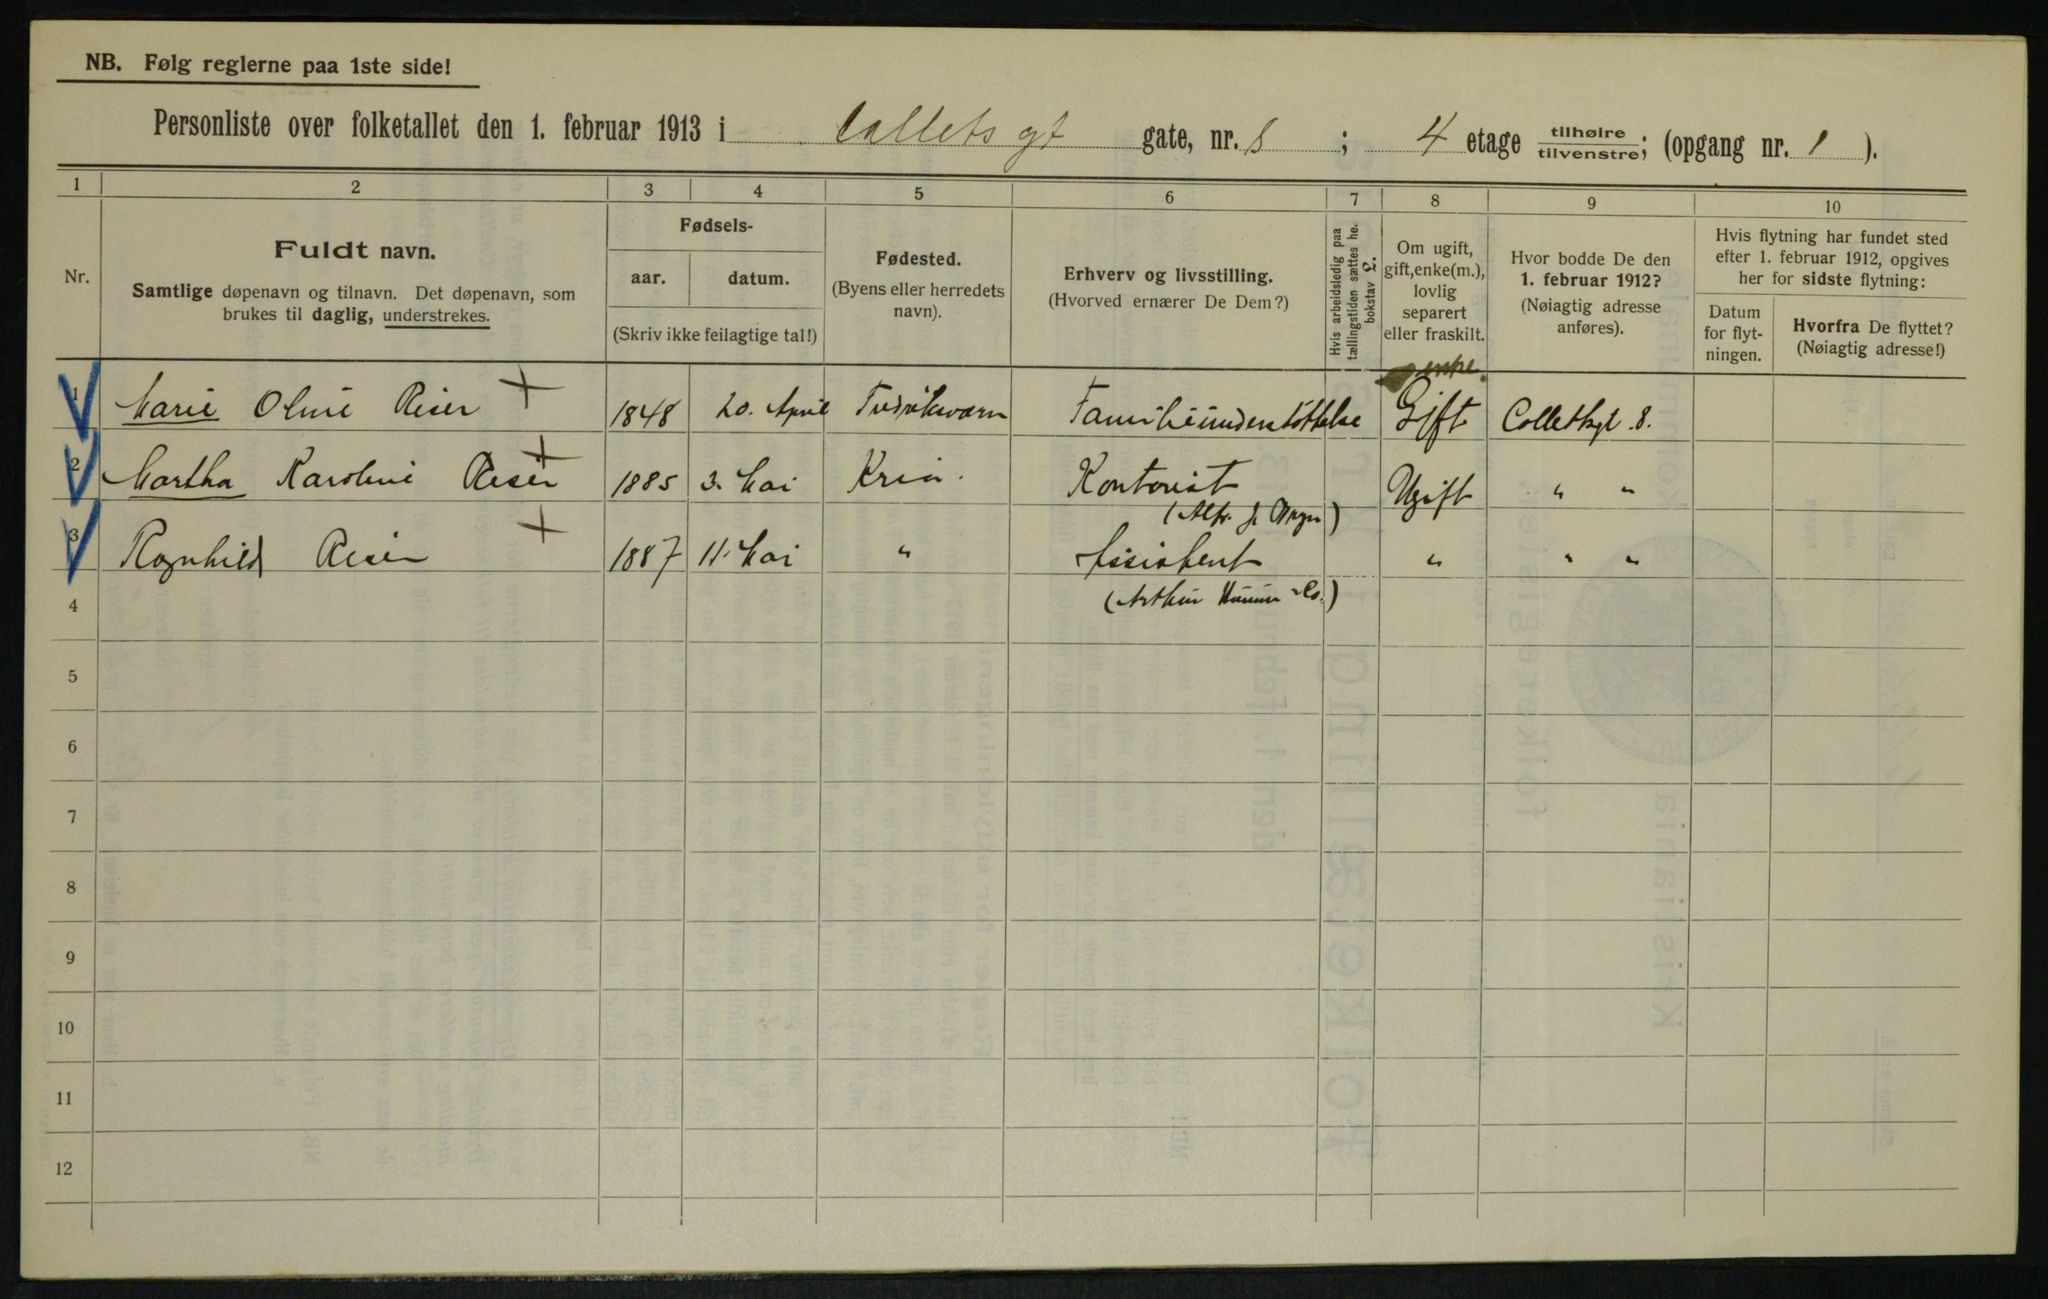 NB. Følg reglerne paa 1ste side!
Personliste over folketallet den 1. februar 1913 i Collets gt gate, nr. 8 ; 4 etage tilhøire / tilvenstre; (opgang nr. 1 ).
1 2 3 4 5 6 7 8 9 10
Nr.
Fuldt navn.
Samtlige døpenavn og tilnavn. Det døpenavn, som
brukes til daglig, understrekes.
Fødsels-
aar. datum.
(Skriv ikke feilagtige tal!)
Fødested.
(Byens eller herredets
navn).
Erhverv og livsstilling.
(Hvorved ernærer De Dem?)
Hvis arbeidsledig paa
tællingstiden sættes he.
bokstav L.
Om ugift,
gift, enke(m.),
lovlig
separert
eller fraskilt.
Hvor bodde De den
1. februar 1912?
(Nøiagtig adresse
anføres).
Hvis flytning har fundet sted
efter 1. februar 1912, opgives
her for sidste flytning:
Datum
for flyt-
ningen.
Hvorfra De flyttet?
(Nøiagtig adresse!)
enke.
1 Marie Oline Reier 1848 20. April Fredriksværn Familieunderstøttelse Gift Colletsgt. 8.
2 Martha Karoline Reier 1885 3. Mai Kria. Kontorist Ugift " "
(Alfr. J.
3 Ragnhild Reier 1887 11. Mai " Assistent " " "
(Arthur Co.)
4
5
6
7
8
9
10
11
12